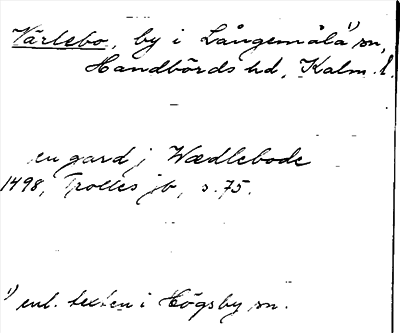 Värlebo, by i Långemåla¹⁾ sn,
Handbörds hd, Kalm. l.
en gard j Wædlebode
1498, Trolles jb, s. 75.
¹⁾ enl. texten i Högsby sn.